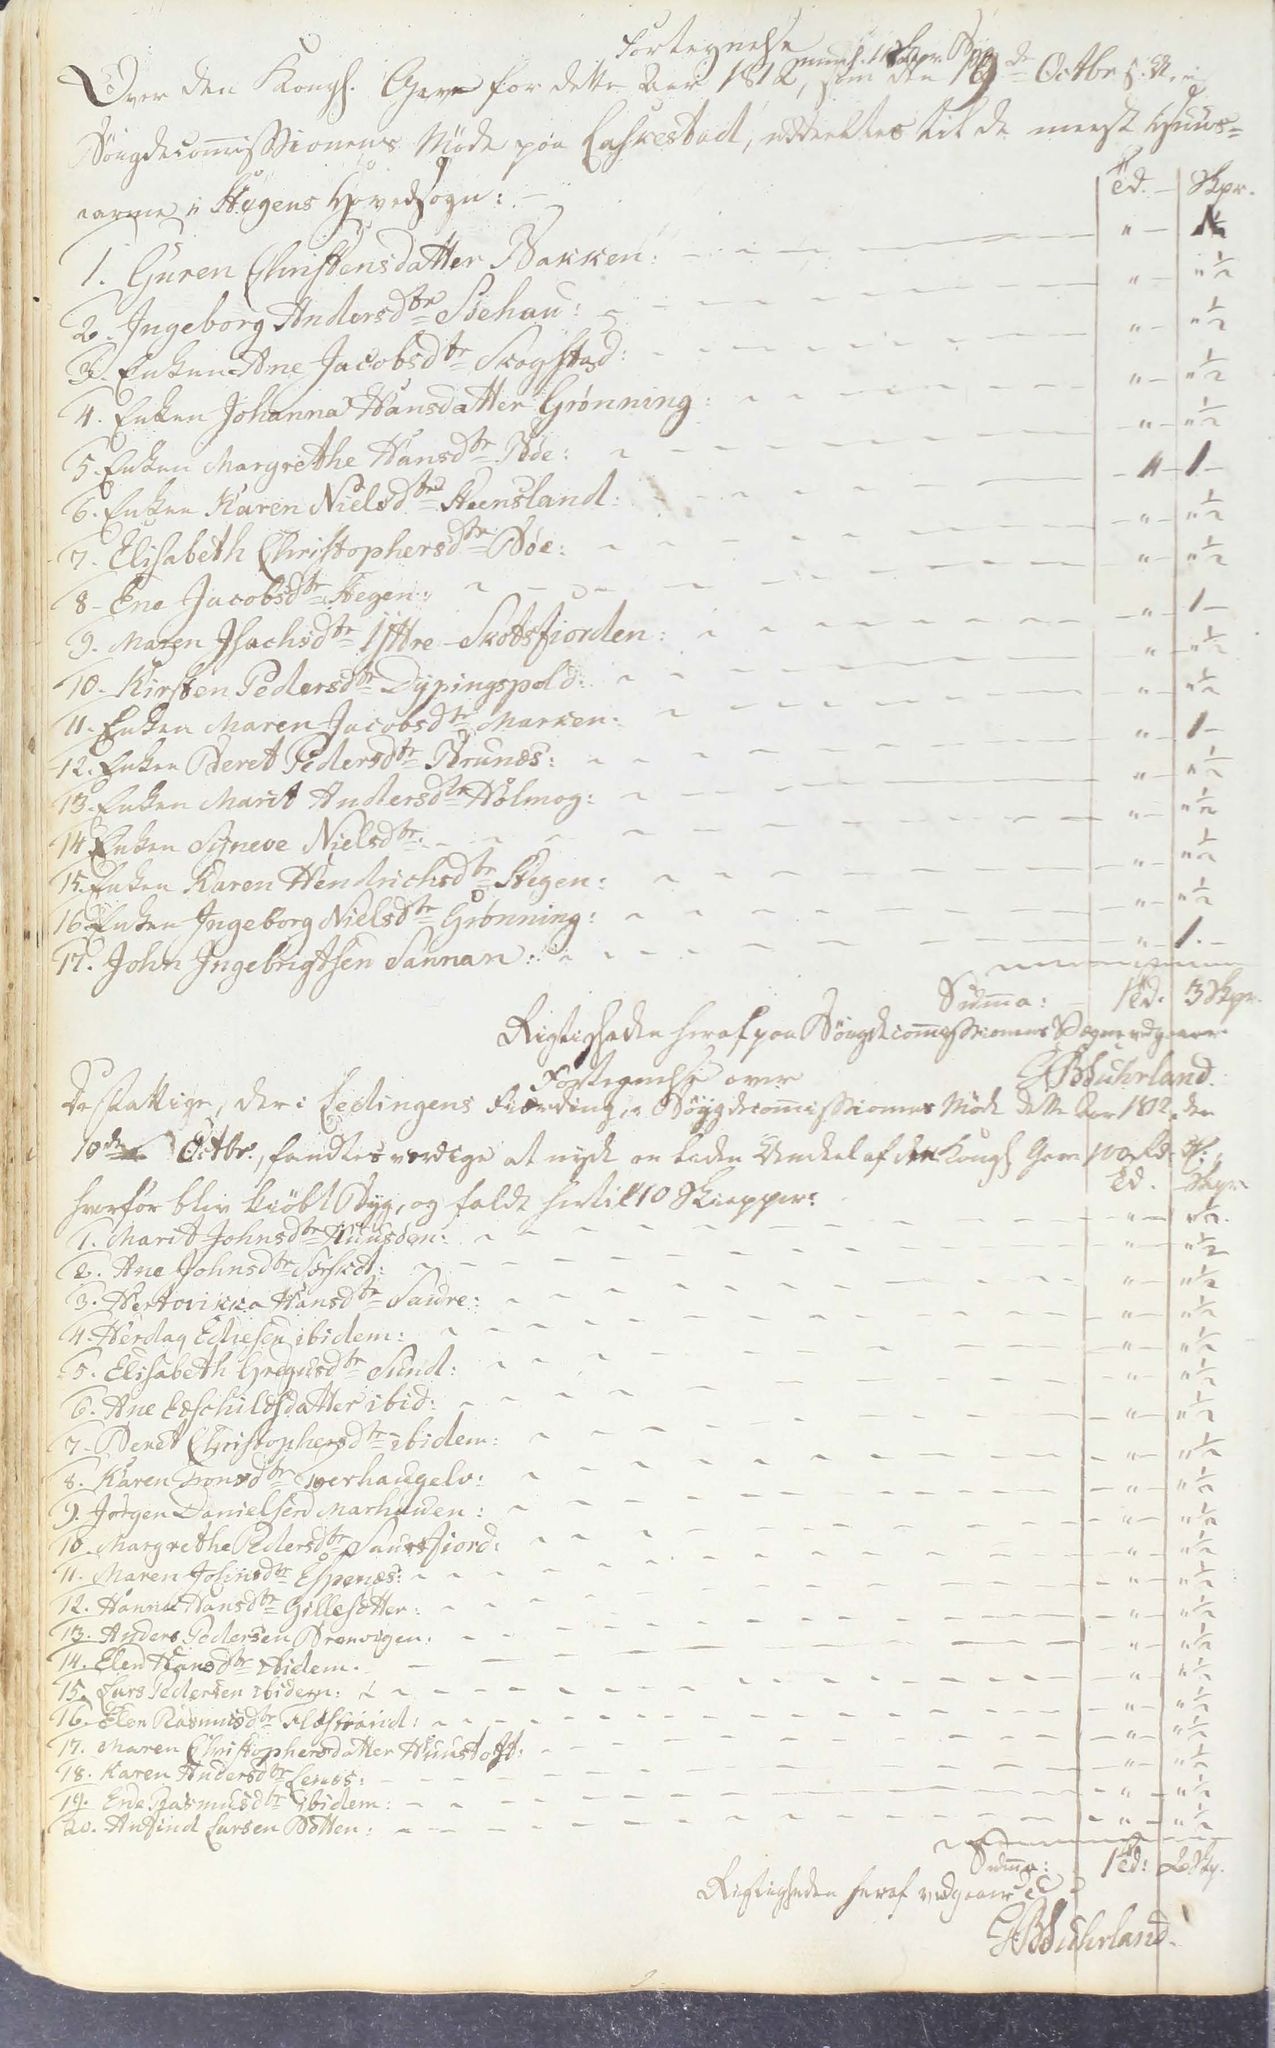 Fortegnelse
Over den Kongl. Gave for dette Aar 1812, som den 19de Octbr s. A. i
Söugdecommissionens Møde paa Laskestad, uddeeltes til de meest Huus-
arme i Stegens Hovedsogn: Td. Skpr.
1. Guren Christensdatter Bakken: " ½
2. Ingeborg Andersdtr Söehau: " "½
3. Enken Ane Jacobsdtr Skogstad: " "½
4. Enken Johanna Hansdatter Grønning: " "½
5. Enken Margrethe Hansdtr Bøe: " "½
6. Enken Karen Nielsdtr Steensland: " 1
7. Elisabeth Christophersdtr Bøe: " "½
8. Ene Jacobsdtr Stegen: " "½
9. Maren Isachsdtr Ittre Skotsfiorden: " 1
10. Kirsten Pedersdtr Dypingspold: " "½
11. Enken Maren Jacobsdtr Marken: " "½
12. Enken Beret Pedersdtr Brunæs: " 1
13. Enken Marit Andersdtr Holmog: " "½
14. Enken Synneve Nielsdtr: " "½
15. Enken Karen Hendrichsdtr Stegen: " "½
16. Enken Ingeborg Nielsdtr Grønning: " "½
17. John Ingebrigtsen Sannan: " 1.
Summa: 1 Td. 3 Skpr.
Rigtigheden heraf paa Söugdecommissionens Vegne vedgaaer
G Buhrland.
Fortegnelse over
De fattige, der i Lødingens Fierding, i Söugdecommissionens Møde dette Aar 1812, den
10de Octbr., fandtes værdige at nyde en liden Andeel af den Kongl Gave
hvorfor blev kiöbt Byg, og faldt hertil 10 Skiepper: Td. Skpr.
1. Marit Johnsdtr Huusden: " "½
2. Ane Johnsdtr Sörskot: " "½
3. Hertvikka Hansdtr Saure: " "½
4. Herdag Ediesen ibidem: " "½
5. Elisabeth Gregusdtr Sund: " "½
6. Ane Eschildsdatter ibid: " "½
7. Beret Christophersdtr ibidem: " "½
8. Karen Tronsdtr Iverhaugelv: " "½
9. Jörgen Danielsen Marhauen: " "½
10. Margrethe Pedersdtr Saursfiord: " "½
11. Maren Johnsdtr Espenæs: " "½
12. Hanna Hansdtr Gillesötter: " "½
13. Anders Pedersen Brenvigen: " "½
14. Elen Hansdtr ibidem: " "½
15. Lars Pedersen ibidem: " "½
16. Elen Rasmusdtr Flæstrand: " "½
17. Maren Christophersdatter Huustoft: " "½
18. Karen Andersdtr Lenæs: " "½
19. Ene Rasmusdtr ibidem: " "½
20. Anfind Larsen Botten: " "½
Summa: 1 Td: 2 Skp.
Rigtigheden heraf vedgaaer
G Buhrland.